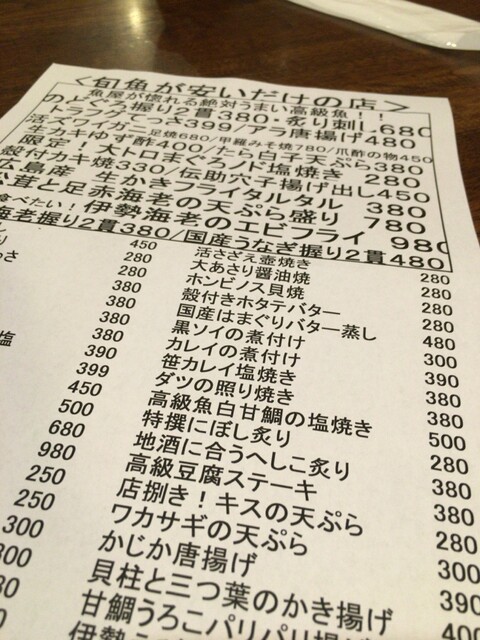 <旬魚が安いだけの店>
魚屋が惚れる絶対うまい高級魚!!
のどぐろ握り2貫380・炙り刺し680
トラフグてっさ399/アラ唐揚げ480
活ズワイガニ 足焼680/甲羅みそ焼780/爪酢の物450
生カキゆず酢400/たら白子天ぷら380
限定!大トロまぐろハド塩焼き 280
殻付カキ焼330/伝助穴子揚げ出し450
広島産 生かきフライタルタル 380
松茸と足赤海老の天ぷら盛り 780
食べたい!伊勢海老のエビフライ 980
海老握り2貫380/国産うなぎ握り2貫480
450
280
280
380
380
380
塩 390
399
450
500
680
980
250
250
300
300
活さざえ壺焼き 280
大あさり醤油焼 280
ホンビノス貝焼 280
殻付きホタテバター 280
国産はまぐりバター蒸し 480
黒ソイの煮付け 300
カレイの煮付け 390
笹カレイ塩焼き 380
ダツの照り焼き 380
高級魚白甘鯛の塩焼き 500
特撰にぼし炙り 280
地酒に合うへしこ炙り 380
高級豆腐ステーキ 380
店捌き!キスの天ぷら 280
ワカサギの天ぷら 300
かじか唐揚げ 390
貝柱と三つ葉のかき揚げ
甘鯛うろこパリパリ揚げ
伊勢